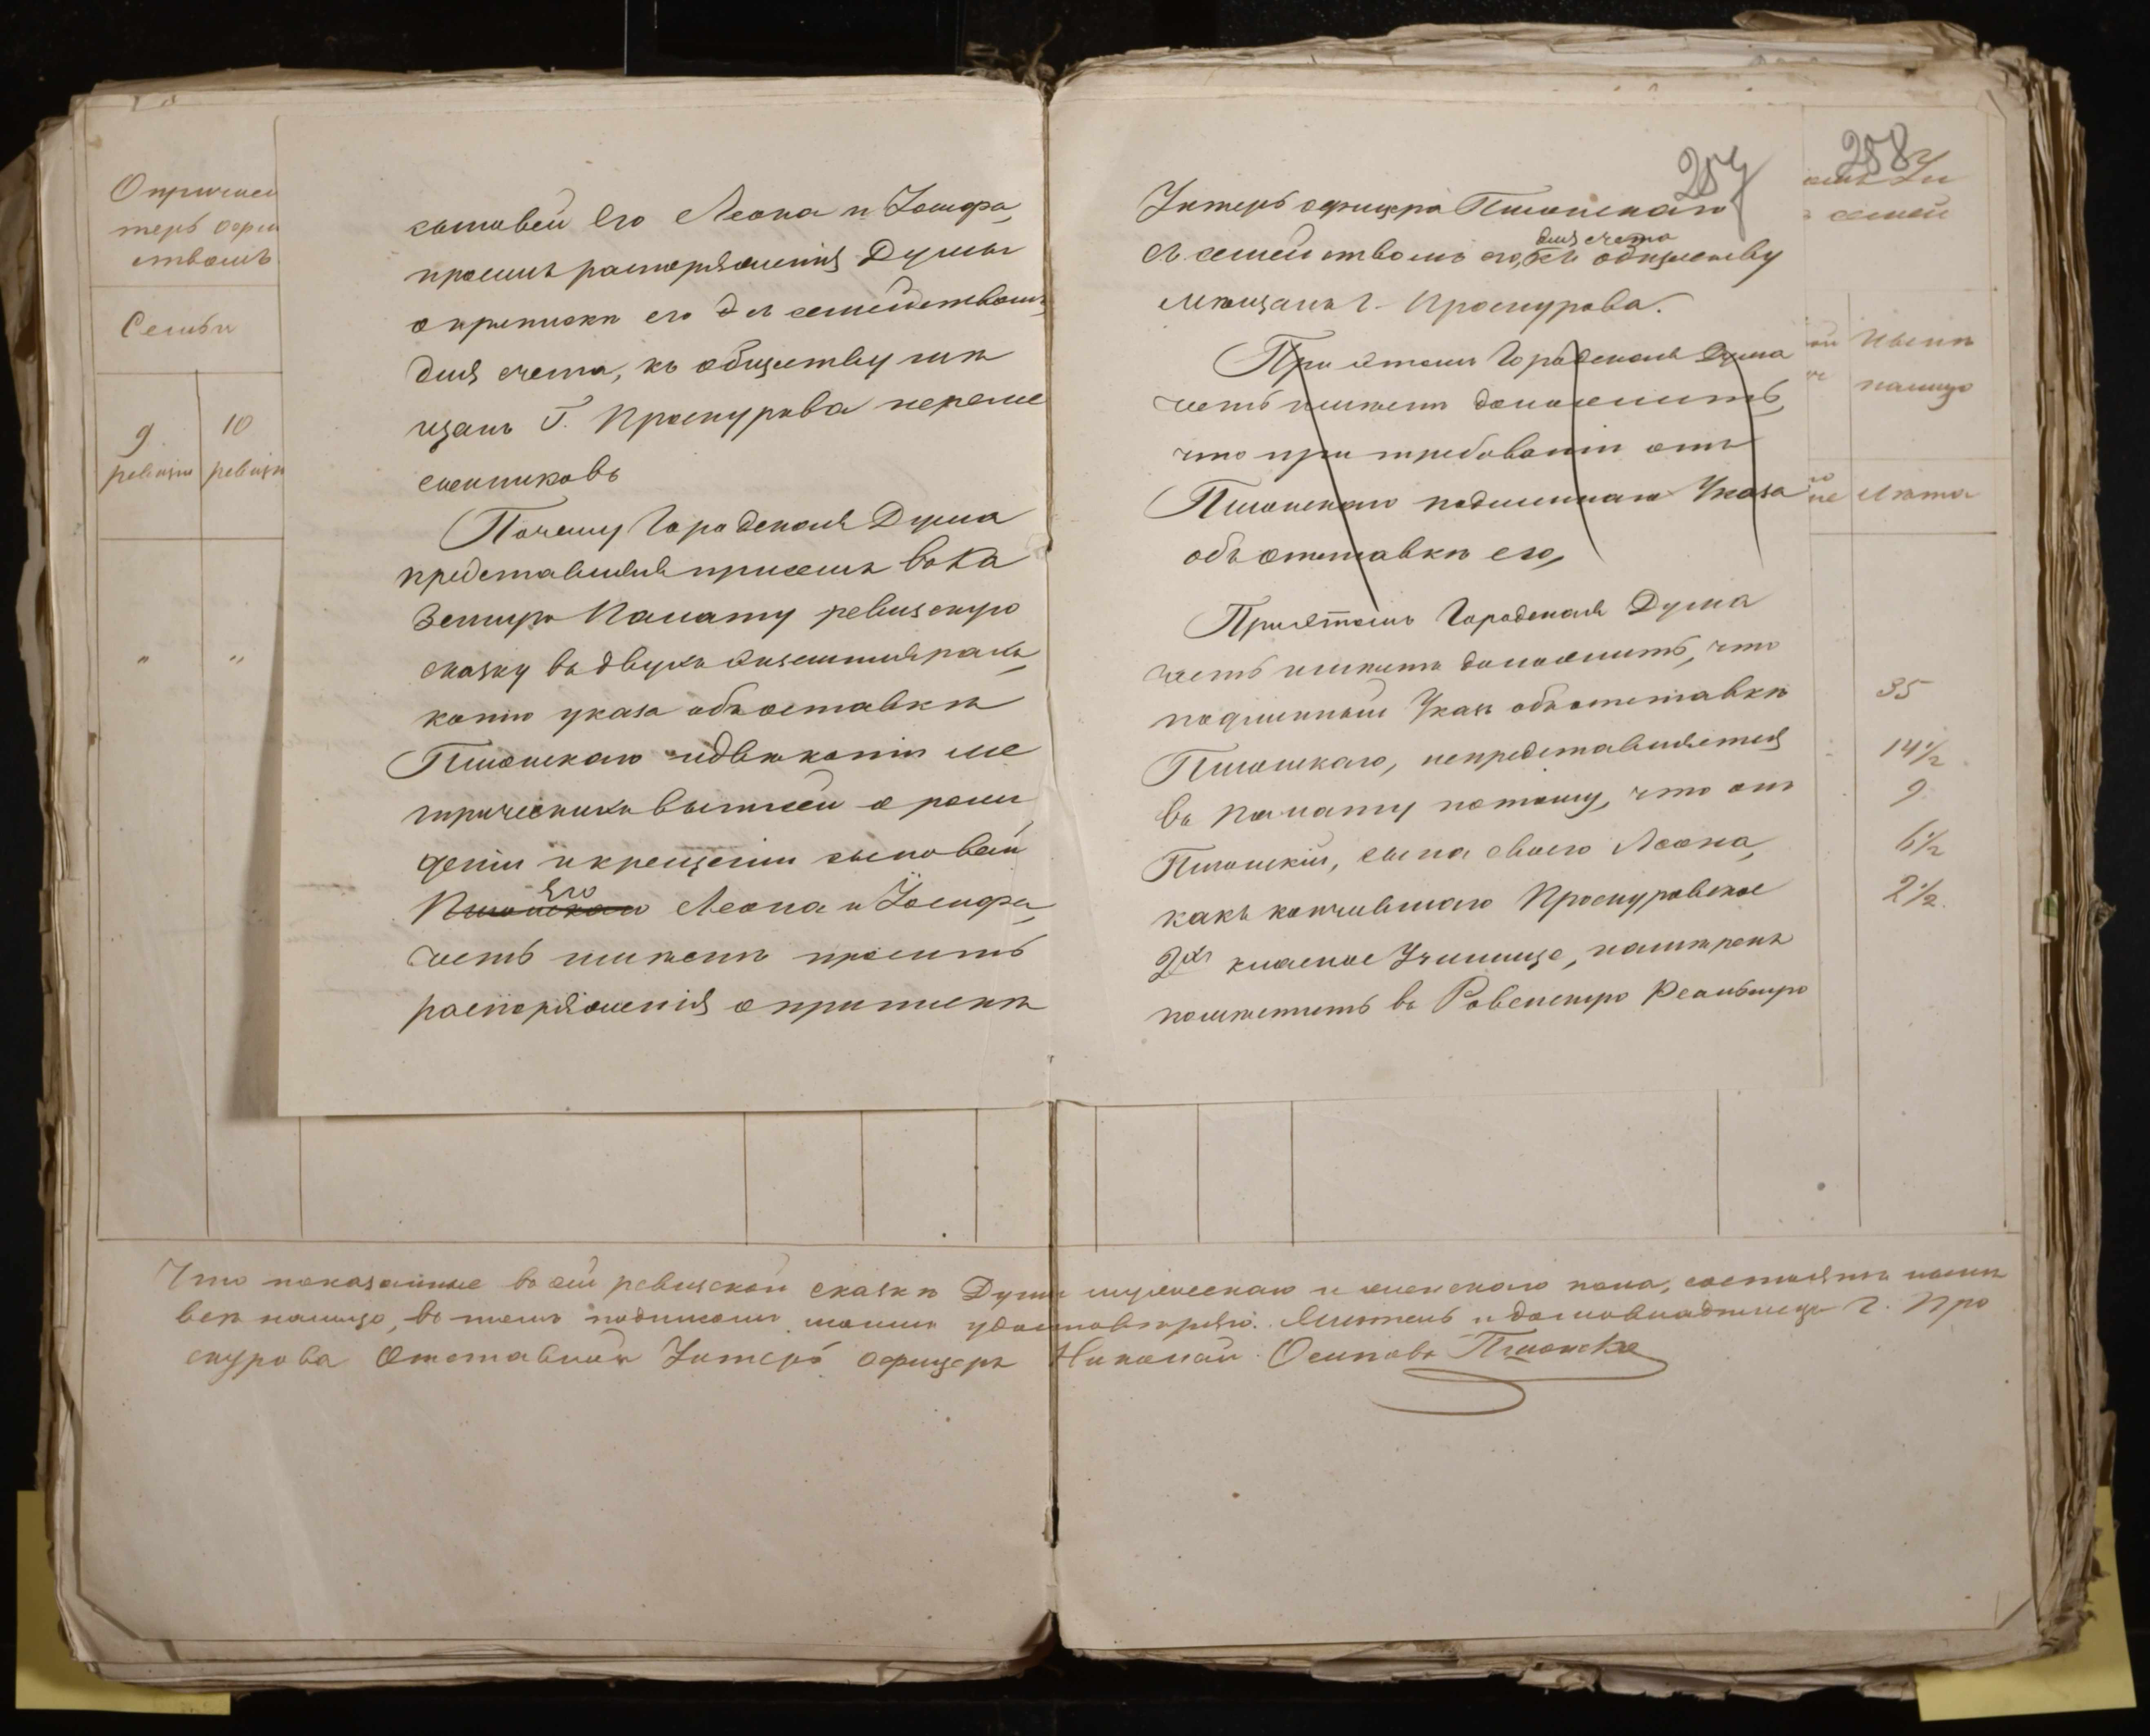 О причисл
теръ офи
ствомъ
Семьи
9 ревизіи
10 ревизіи
" "
сыновей Его Леона и Іосифа,
проситъ распоряженія Думы
о припискѣ его съ семействомъ,
для счета, къ обществу мѣ
щанъ Г. Проскурова
Почему Городская Дума
представляя при семъ въ Ка
зенную Палату ревизскую
сказку въ двухъ экземплярахъ,
копію указа объ отставкѣ
и двѣ копіи ме
трическихъ выписей о рож
деніи и крещеніи сыновей
Его Леона и Іосифа,
честь имѣетъ просить
распоряженія о припискѣ
257
Унтеръ офицера
съ семействомъ его, для счета къ обществу
мѣщанъ г. Проскурова.
При этомъ Городская Дума
честь имѣетъ доложить,
что при требованіи отъ
подлиннаго Указа
объ отставкѣ его,
При этомъ Городская Дума
честь имѣетъ доложить, что
подлинный Указъ объ отставкѣ
непредставляется
въ Палату потому, что онъ
сына своего Леона,
какъ кончившаго Проскуровское
2хъ класное Училище, намѣренъ
помѣстить въ Ровенскую Реальную
258
Ун
семей
Нынѣ
налицо
Лѣта
35
14 1/2
9
6 1/2
2 1/2.
Что показанные въ сей ревизской сказкѣ Души мужескаго и женскаго пола, состоятъ нынѣ
всѣ налицо, въ томъ подписомъ моимъ удостовѣряю. Житель и домовладѣлецъ г. Про
скурова Отставной Унтеръ офицеръ Николай Осиповъ